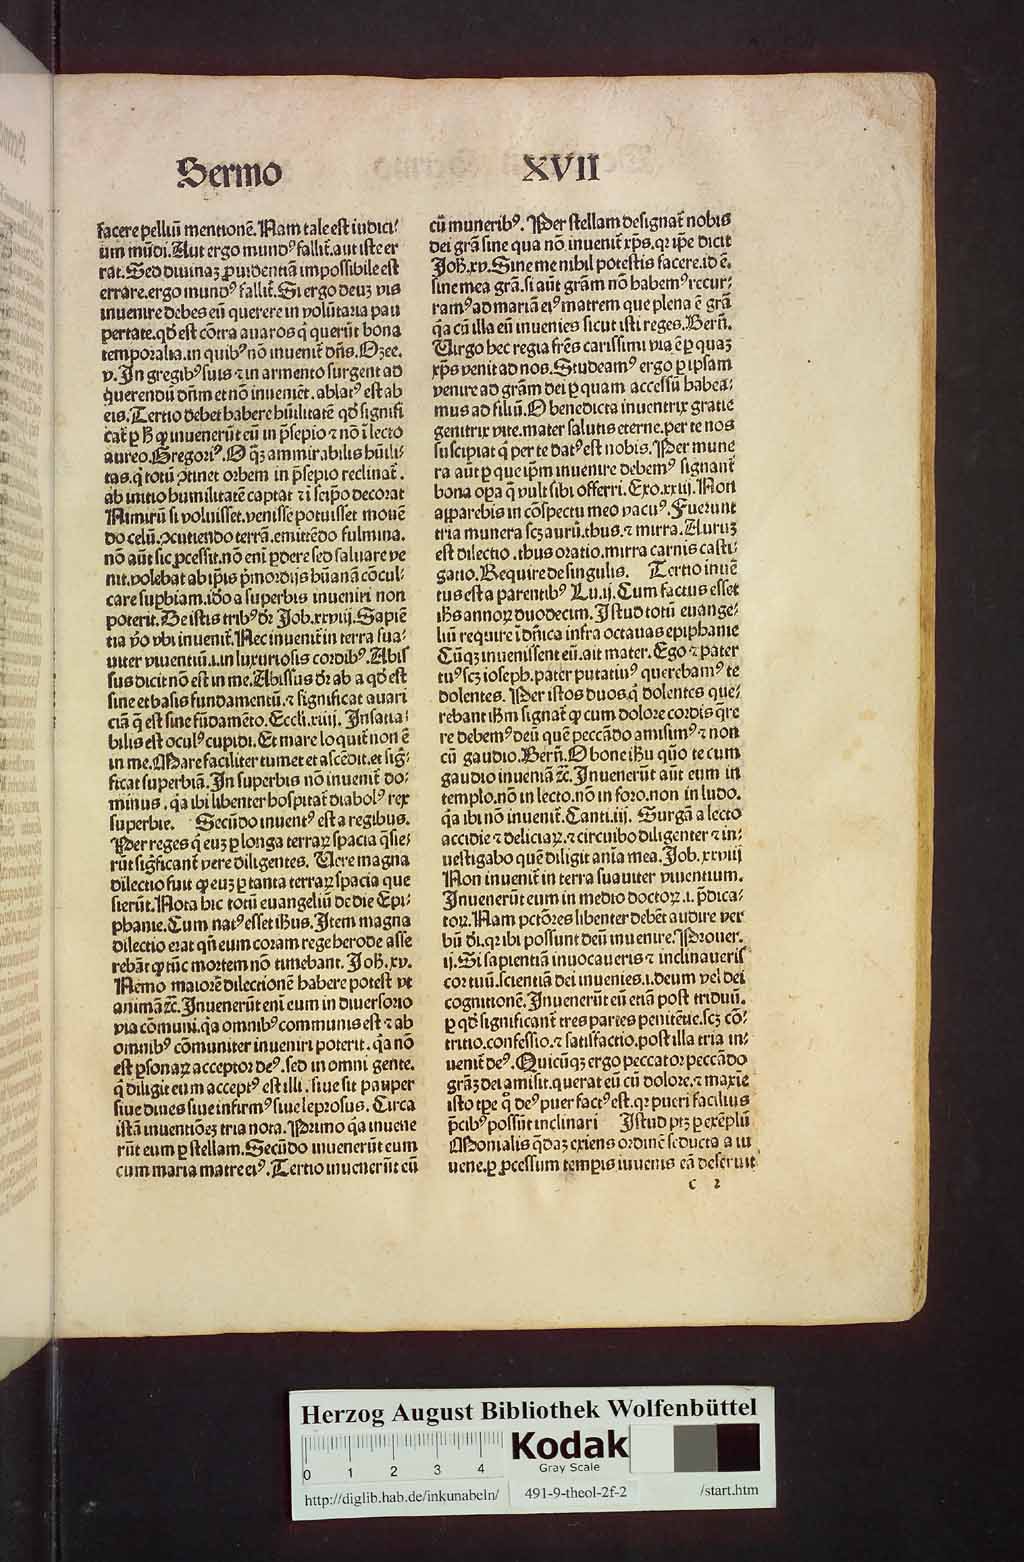 Sermo XVII
facere pelliū mentionē. Nam tale est iudici⸗
um mūdi. Aut ergo mundꝰ fallit̄. aut iste er
rat. Sed diuinaꝫ ꝓuidentiā impossibile est
errare. ergo mundꝰ fallit̄. Si ergo deuꝫ vis
inuenire debes eū querere in volūtaria pau
pertate. qđ est cōtra auaros q̄ querūt bona
temporalia. in quibꝰ nō inuenit̄ dn̄s. Ozee.
v. In gregibꝰ suis ⁊ in armento surgent ad
querendū dn̄m et nō inueniēt. ablatꝰ est ab
eis. Tertio debet habere hūilitatē qđ signifi
cat̄ ꝑ h̄ ꝙ inuenerūt eū in p̄sepio ⁊ nō ī lecto
aureo. Gregoriꝰ. O q̄ꝫ ammirabilis hūili⸗
tas. q̄ totū ꝯtinet orbem in p̄sepio reclinat̄.
ab initio humilitatē captat ⁊ ī seip̄o decorat
Nimirū si voluisset. venisse potuisset mouē
do celū. ꝯcutiendo terrā. emittēdo fulmina.
nō aūt sic ꝓcessit. nō eni ꝑdere sed saluare ve
nit. volebat ab ip̄is p̄mordijs hūanā cōcul⸗
care suꝑbiam. iđo a superbis inueniri non
poterit. De istis tribꝰ dr̄ Job. xxviij. Sapiē
tia v̄o vbi inuenit̄. Nec inuenit̄ in terra sua⸗
uiter viuentiū. i. in luxuriosis cordibꝰ. Abis
sus dicit nō est in me. Abissus dr̄ ab a qđ est
sine et basis fundamentū. ⁊ significat auari
ciā q̄ est sine fūdamēto. Eccli. xiiij. Insatia⸗
bilis est oculꝰ cupidi. Et mare loquit̄ non ē
in me. Mare faciliter tumet et ascēdit. et siḡ⸗
ficat superbiā. In superbis nō inuenit̄ do⸗
minus. q̄a ibi libenter hospitat̄ diabolꝰ rex
superbie. Secūdo inuentꝰ est a regibus.
Per reges q̄ euꝫ ꝑ longa terraꝝ spacia q̄sie⸗
rūt siḡficant̄ vere diligentes. Uere magna
dilectio fuit ꝙ euꝫ ꝑ tanta terraꝝ spacia que
sierūt. Nota hic totū euangeliū de die Epi⸗
phanie. Cum natꝰ esset ih̄us. Item magna
dilectio erat qn̄ eum coram rege herode asse
rebāt ꝙ tūc mortem nō timebant. Joh̄. xv.
Nemo maiorē dilectionē habere potest vt
animā ⁊c̄. Inuenerūt eni eum in diuersorio
via cōmuni. q̄a omnibꝰ communis est ⁊ ab
omnibꝰ cōmuniter inueniri poterit. q̄a nō
est ꝑsonaꝝ acceptor deꝰ. sed in omni gente.
q̄ diligit eum acceptꝰ est illi. siue sit pauper
siue diues siue infirmꝰ siue leprosus. Circa
istā inuentiōeꝫ tria nota. Primo q̄a inuene
rūt eum ꝑ stellam. Secūdo inuenerūt eum
cum maria matre eiꝰ. Tertio inuenerūt eū
cū muneribꝰ. Per stellam designat̄ nobis
dei grā sine qua nō inuenit̄ xp̄s. qꝛ ip̄e dicit
Joh̄. xv. Sine me nihil potestis facere. id ē.
sine mea grā. si aūt gram nō habemꝰ recur⸗
ramꝰ ad mariā eiꝰ matrem que plena ē grā
q̄a cū illa eū inuenies sicut isti reges. Bern̄.
Uirgo hec regia fr̄es carissimi via ē ꝑ quaꝫ
xp̄s venit ad nos. Studeamꝰ ergo ꝑ ipsam
venire ad grām dei ꝑ quam accessū habea⸗
mus ad filiū. O benedicta inuentrix gratie
genitrix vite. mater salutis eterne. per te nos
suscipiat q̄ per te datꝰ est nobis. Per mune
ra aūt ꝑ que ip̄m inuenire debemꝰ signant̄
bona oꝑa q̄ vult sibi offerri. Exo. xxiij. Non
apparebis in cōspectu meo vacuꝰ. Fuerunt
tria munera scꝫ aurū. thus. ⁊ mirra. Auruꝫ
est dilectio. thus oratio. mirra carnis casti⸗
gatio. Require de singulis. Tertio inuē
tus est a parentibꝰ Lu. ij. Cum factus esset
ih̄s annoꝝ duodecim. Istud totū euange⸗
liū require ī dn̄ica infra octauas epiphanie
Cūqꝫ inuenissent eū. ait mater. Ego ⁊ pater
tuꝰ scꝫ ioseph. pater putatiuꝰ querebamꝰ te
dolentes. Per istos duos. q̄ dolentes que⸗
rebant ih̄m signat̄ ꝙ cum dolore cordis q̄re
re debemꝰ deū quē peccādo amisimꝰ ⁊ non
cū gaudio. Bern̄. O bone ih̄u quō te cum
gaudio inueniā ⁊c̄. Inuenerūt aūt eum in
templo. nō in lecto. nō in foro. non in ludo.
q̄a ibi nō inuenit̄. Canti. iij. Surgā a lecto
accidie ⁊ deliciaꝝ. ⁊ circuibo diligenter ⁊ in⸗
uestigabo quē diligit aīa mea. Job. xxviij
Non inuenit̄ in terra suauiter viuentium.
Inuenerūt eum in medio doctoꝝ. i. p̄dica⸗
toꝝ. Nam pctōres libenter debēt audire ver
bū di. qꝛ ibi possunt deū inuenire. Prouer.
ij. Si sapientiā inuocaueris ⁊ inclinaueris
cor tuū. scientiā dei inuenies. i. deum vel dei
cognitionē. Inuenerūt eū etiā post triduū.
ꝑ qđ significant̄ tres partes penitētie. scꝫ cō⸗
tritio. confessio. ⁊ satisfactio. post illa tria in⸗
uenit̄ deꝰ. Quicūqꝫ ergo peccator peccādo
grāꝫ dei amisit. querat eū cū dolore. ⁊ maxīe
isto tp̄e q̄ deꝰ puer factꝰ est. qꝛ pueri facilius
p̄cibꝰ possūt inclinari Istud ptꝫ ꝑ exēplū
Monialis q̄daꝫ exiens ordinē seducta a iu
uene. ꝑ ꝓcessum temꝑis iuuenis eā deseruit
c 2
Herzog August Bibliothek Wolfenbüttel
0 1 2 3 4
Kodak
Gray Scale
http://diglib.hab.de/inkunabeln/ 491-9-theol-2f-2 /start.htm